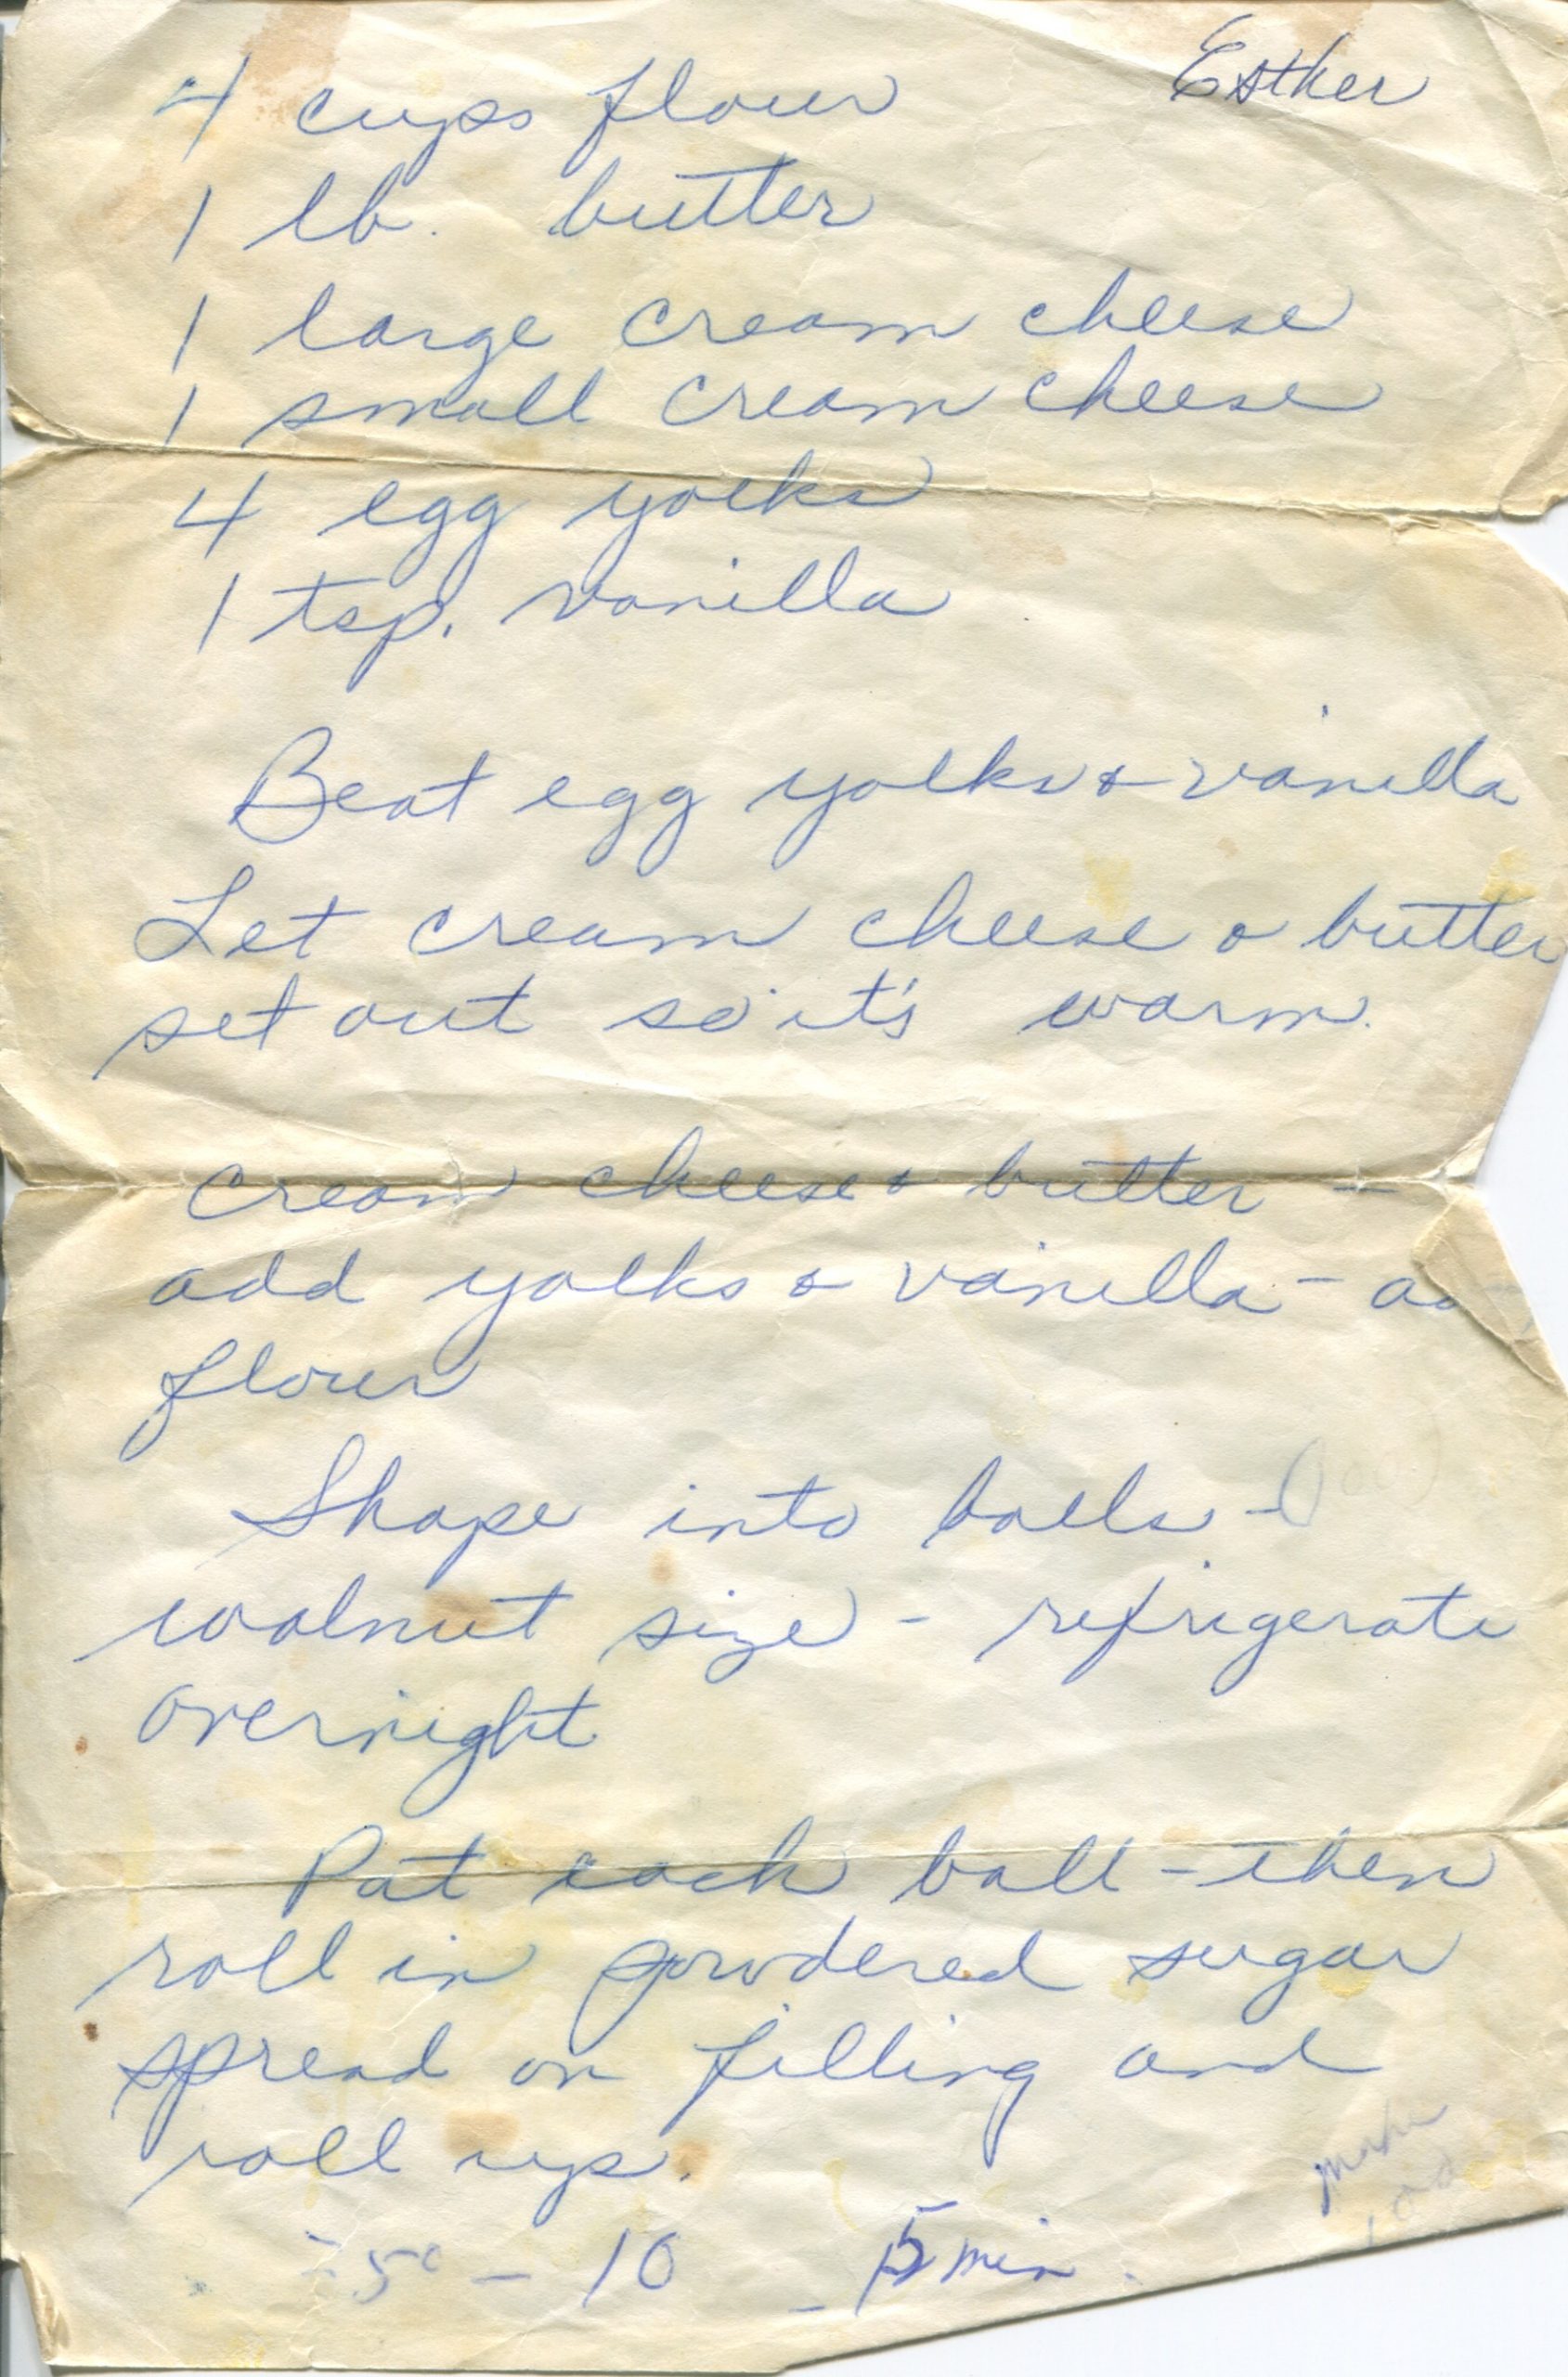 Esther
4 cups flour
1 lb. butter
1 large cream cheese
1 small cream cheese
4 egg yolks
1 tsp. vanilla
Beat egg yolks & vanilla
Let cream cheese & butter
set out so it's warm.
Cream cheese & butter -
add yolks & vanilla - ad
flour
Shape into balls -
walnut size - refrigerate
overnight
Pat each ball - then
roll in powdered sugar
spread on filling and
roll up.
- 10 - 15 min.